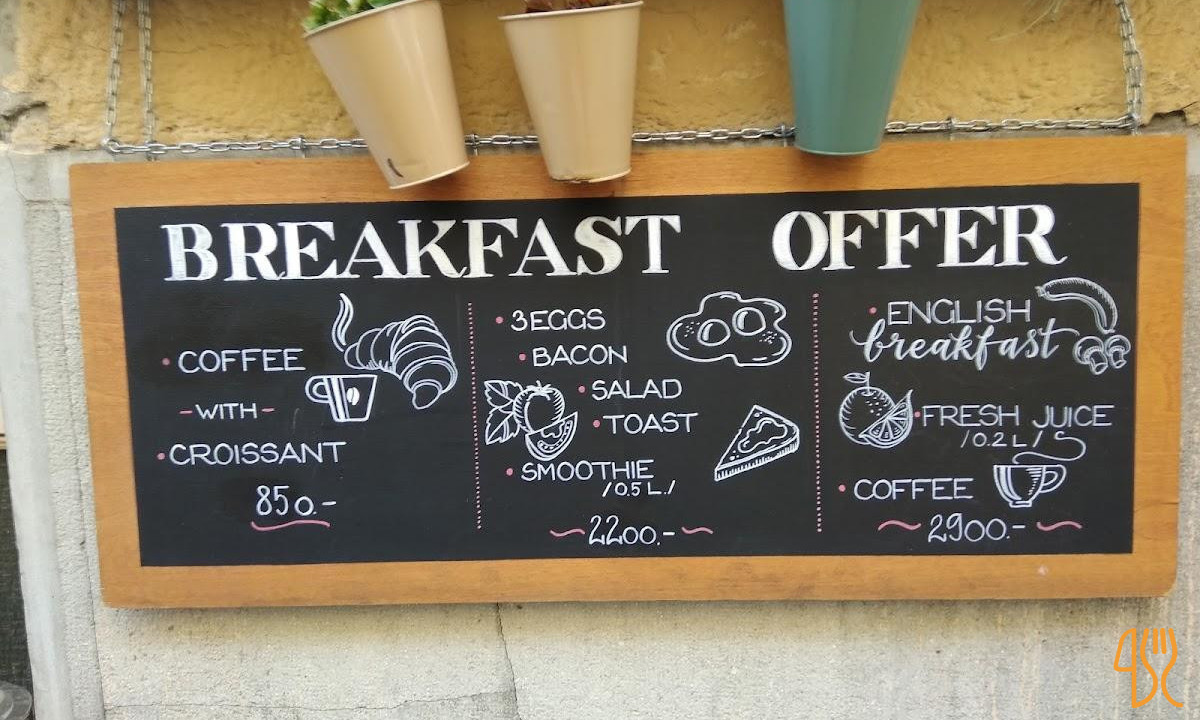 BREAKFAST OFFER
• COFFEE
- WITH -
• CROISSANT
850.-
• 3 EGGS
• BACON
• SALAD
• TOAST
• SMOOTHIE
/0.5 L./
~2200.-~
• ENGLISH
breakfast
• FRESH JUICE
/0.2 L/
• COFFEE
~2900.-~